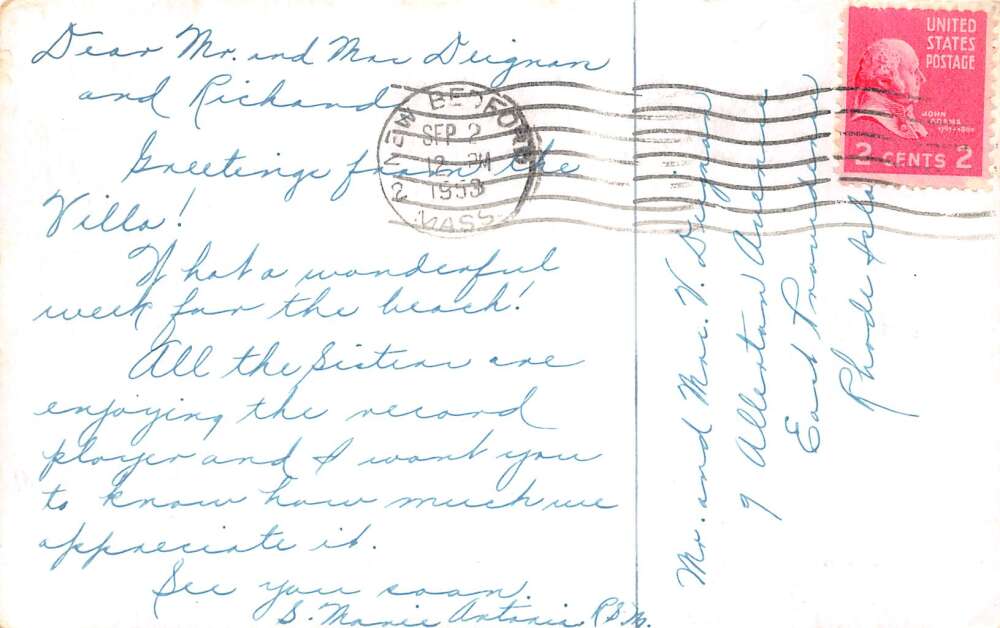 Dear Mr. and Mrs Deignan
and Richard
Greetings from the
Villa!
What a wonderful
week for the beach!
All the Sisters are
enjoying the record
player and I want you
to know how much we
appreciate it.
See you soon.
S. Marie Antonia R.S.M.
NEW BEDFORD
SEP 2
12 PM
1953
2 MASS.
UNITED
STATES
POSTAGE
JOHN
ADAMS
2 CENTS 2
Mr. and Mrs. V. Deignan
9 Allerton Avenue
East Providence
Rhode Island